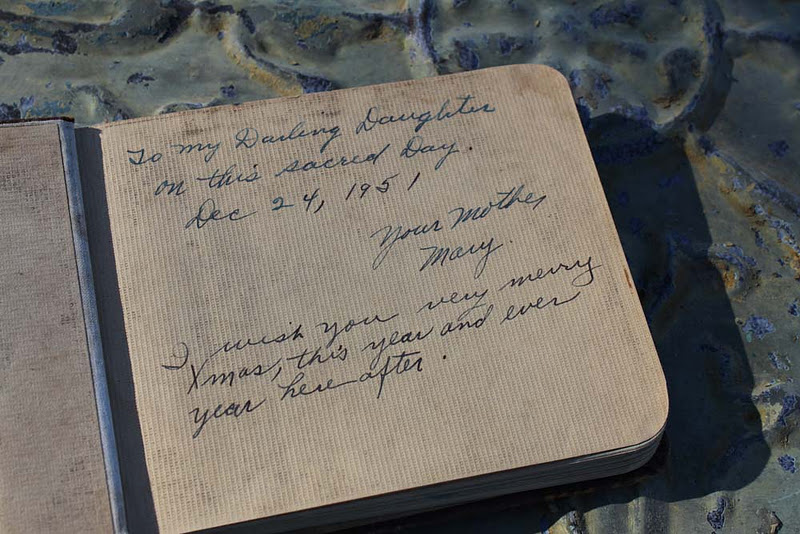 To my Darling Daughter
on this sacred Day.
Dec 24, 1951
Your Mother
Mary.
I wish you very merry
Xmas, this year and ever
year here after.